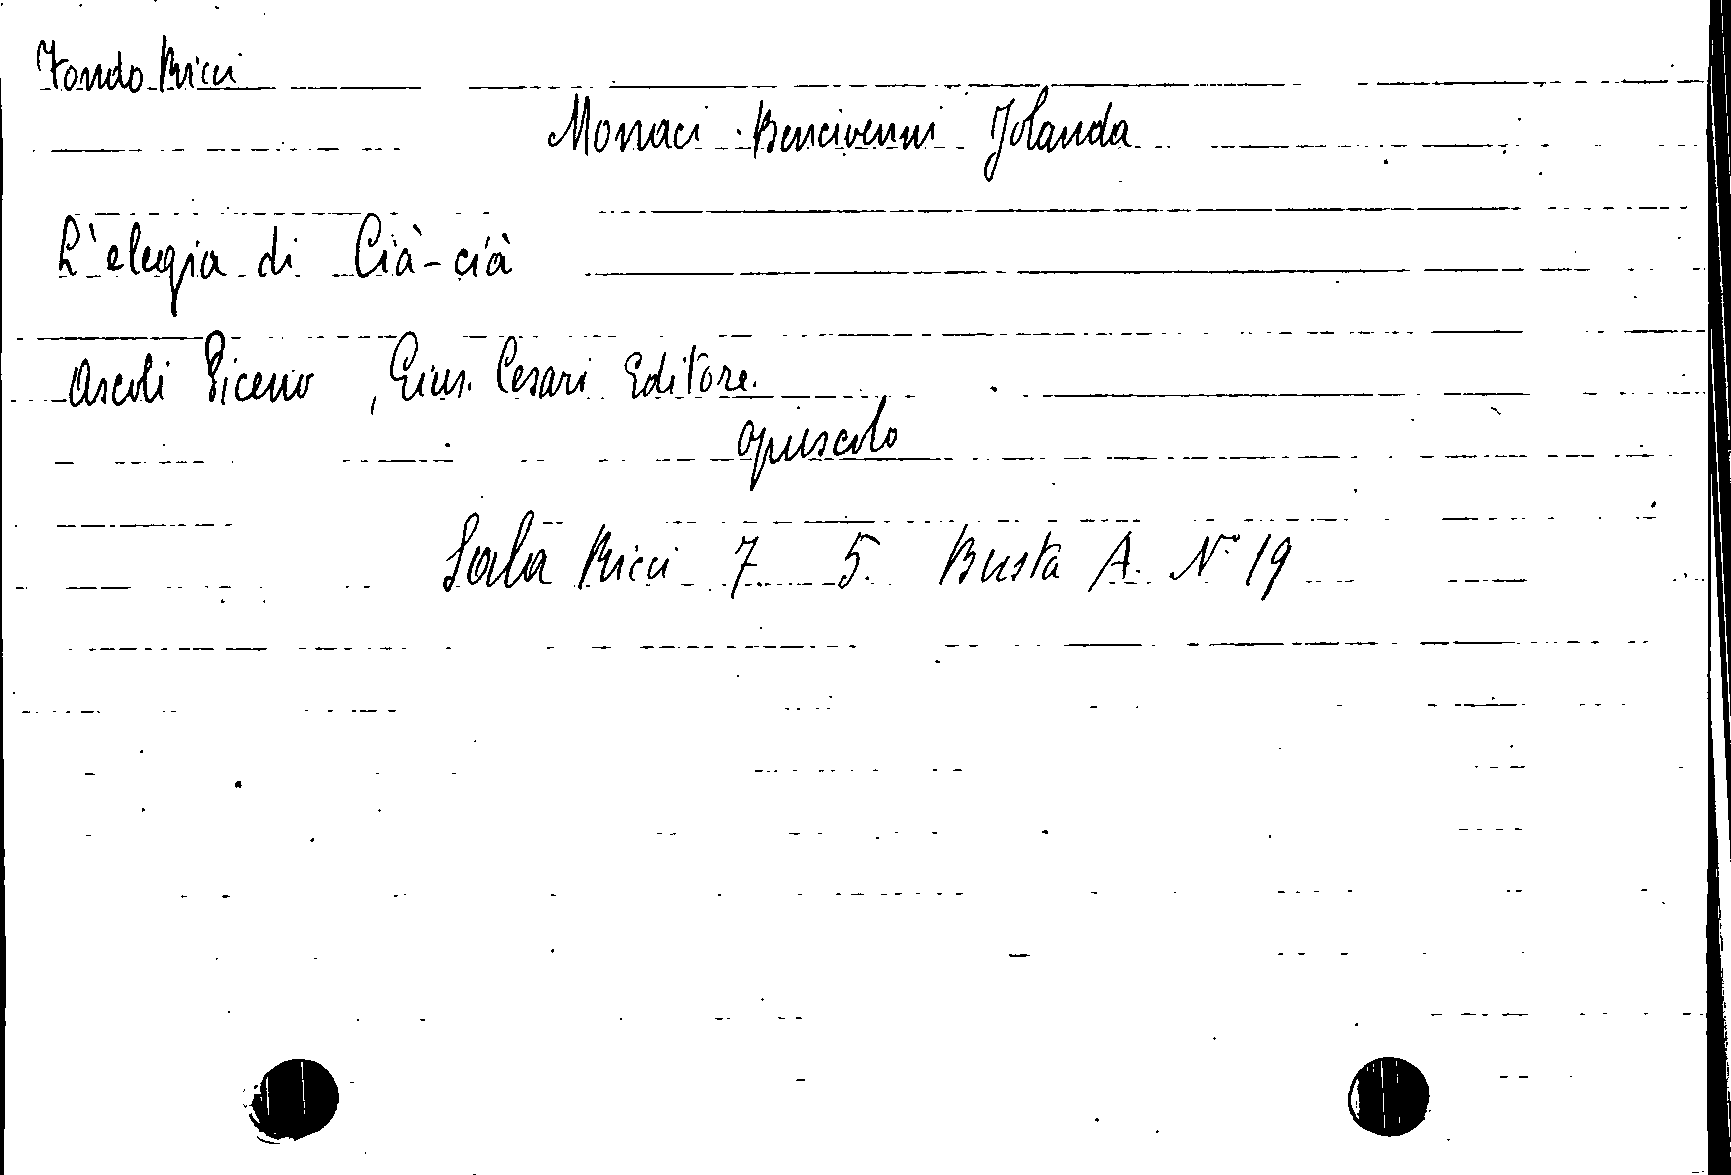 Fondo Ricci
Monaci - Bencivenni Jolanda
L'elegia di Cià-cià
Ascoli Piceno, Gius. Cesari Editore.
opuscolo
Sala Ricci 7. 5. Busta A. N° 19